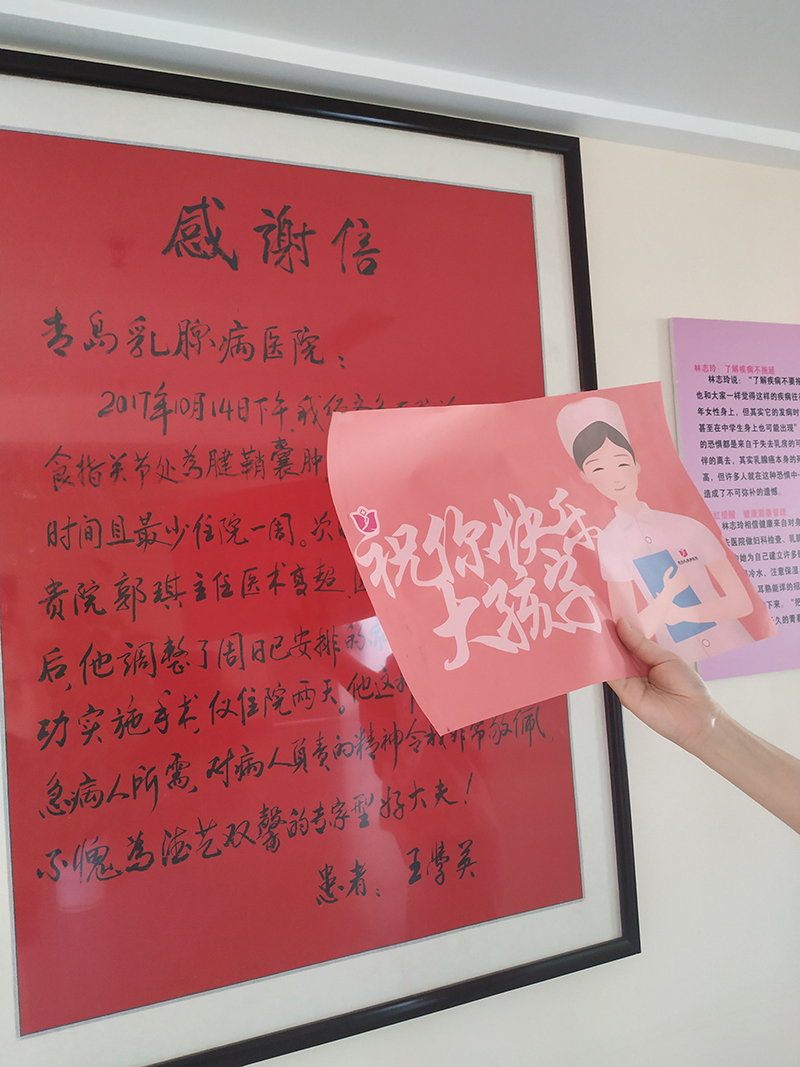 感谢信
青岛乳腺病医院：
2017年10月14日下午,我经
食指关节处為腱鞘囊肿
时间且最少住院一周。次
贵院郭琪主任医术高超,
后,他調整了周日已安排的
功实施手术,仅住院两天。他这
急病人所需,对病人负责的精神令我非常敬佩,
不愧為德艺双馨的专家型好大夫!
患者：王學英
祝你快乐
大孩子
林志玲：了解疾病不拖延
林志玲说：“了解疾病不要拖
也和大家一样觉得这样的疾病往
年女性身上，但其实它的发病时
甚至在中学生身上也可能出现”
的恐惧都是来自于失去乳房的可
伴的离去。其实乳腺癌本身的死
高，但许多人就在这种恐惧中一
造成了不可弥补的遗憾。
红提醒：健康需要管理
林志玲相信健康来自对身
去医院做妇科检查、乳腺
她为自己建立许多
冷水、注意保湿
耳熟能详的
下来。“把
久的青春